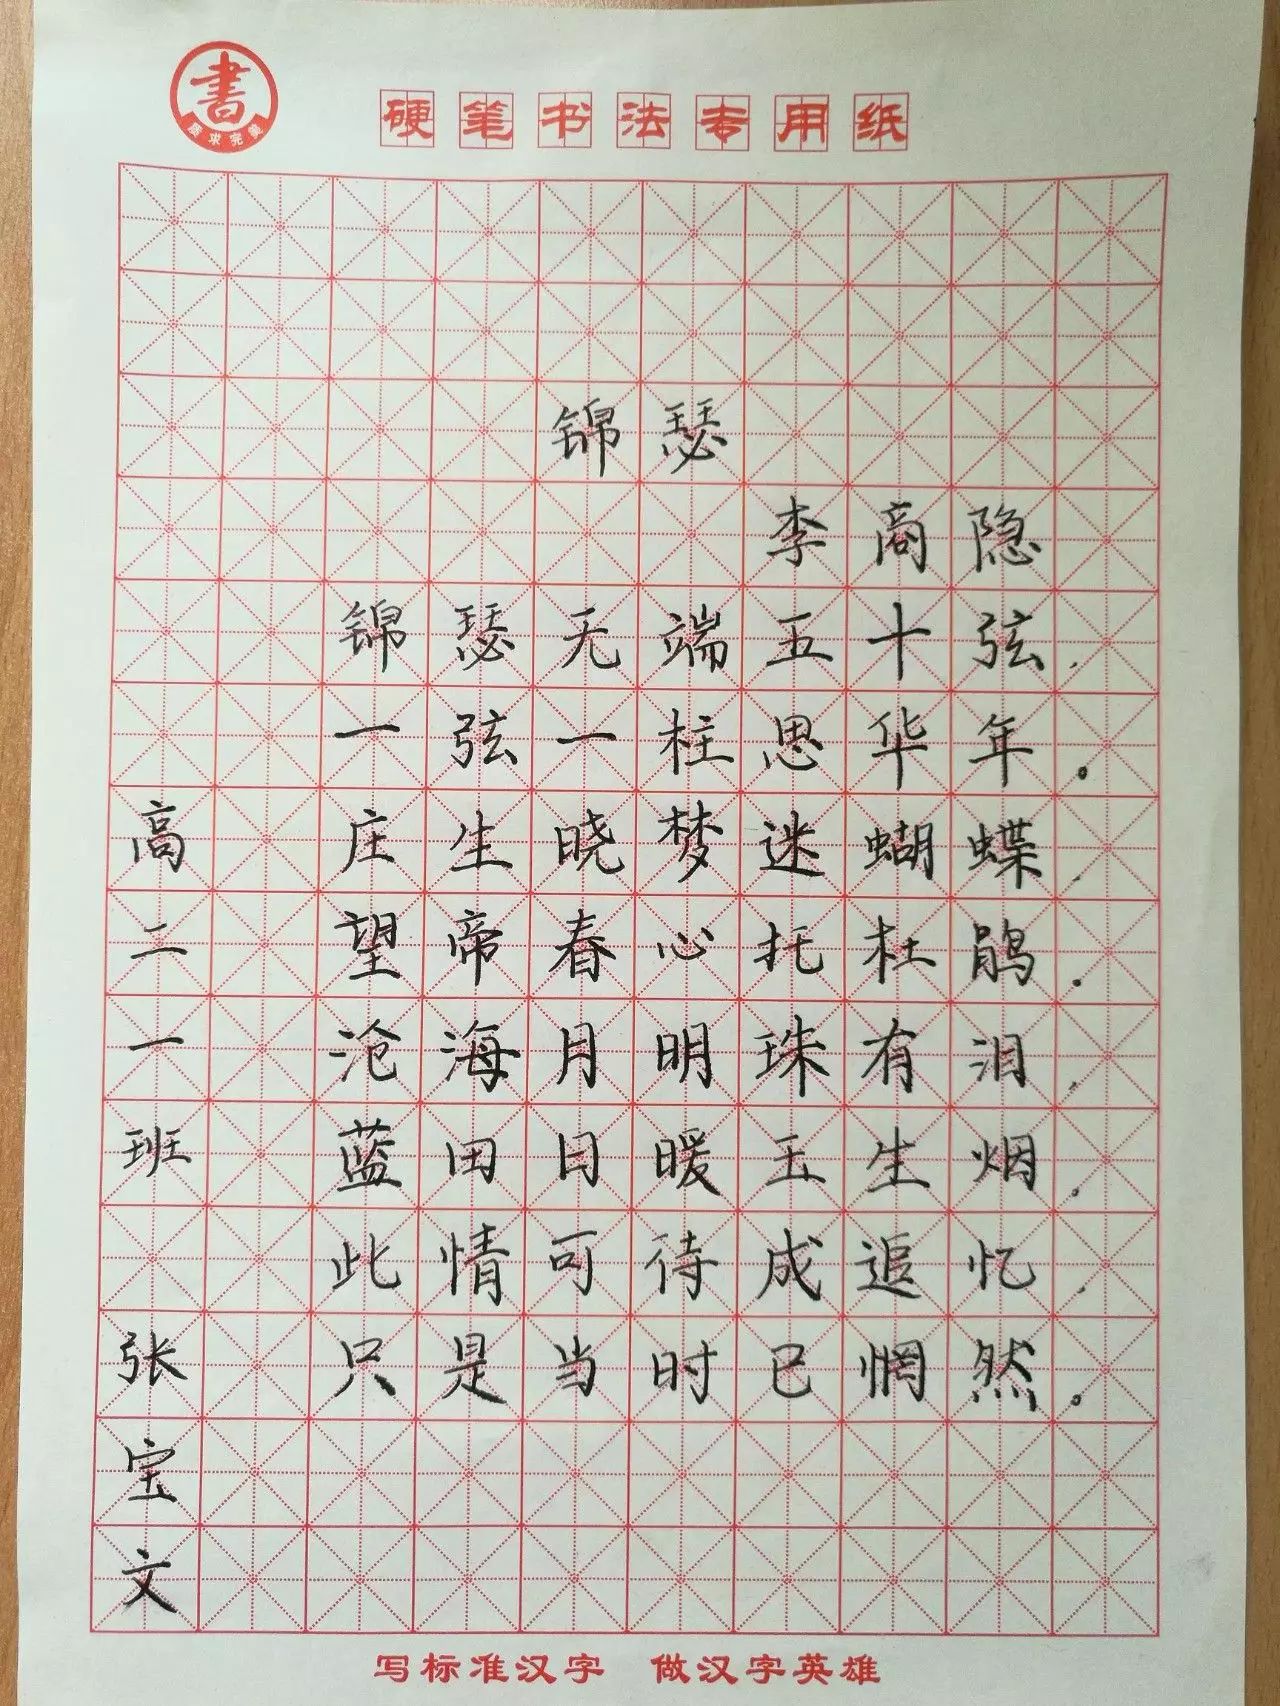 書
硬笔书法专用纸
锦瑟
李商隐
锦瑟无端五十弦,
一弦一柱思华年。
庄生晓梦迷蝴蝶,
望帝春心托杜鹃。
沧海月明珠有泪,
蓝田日暖玉生烟。
此情可待成追忆,
只是当时已惘然。
高二一班 张宝文
写标准汉字 做汉字英雄